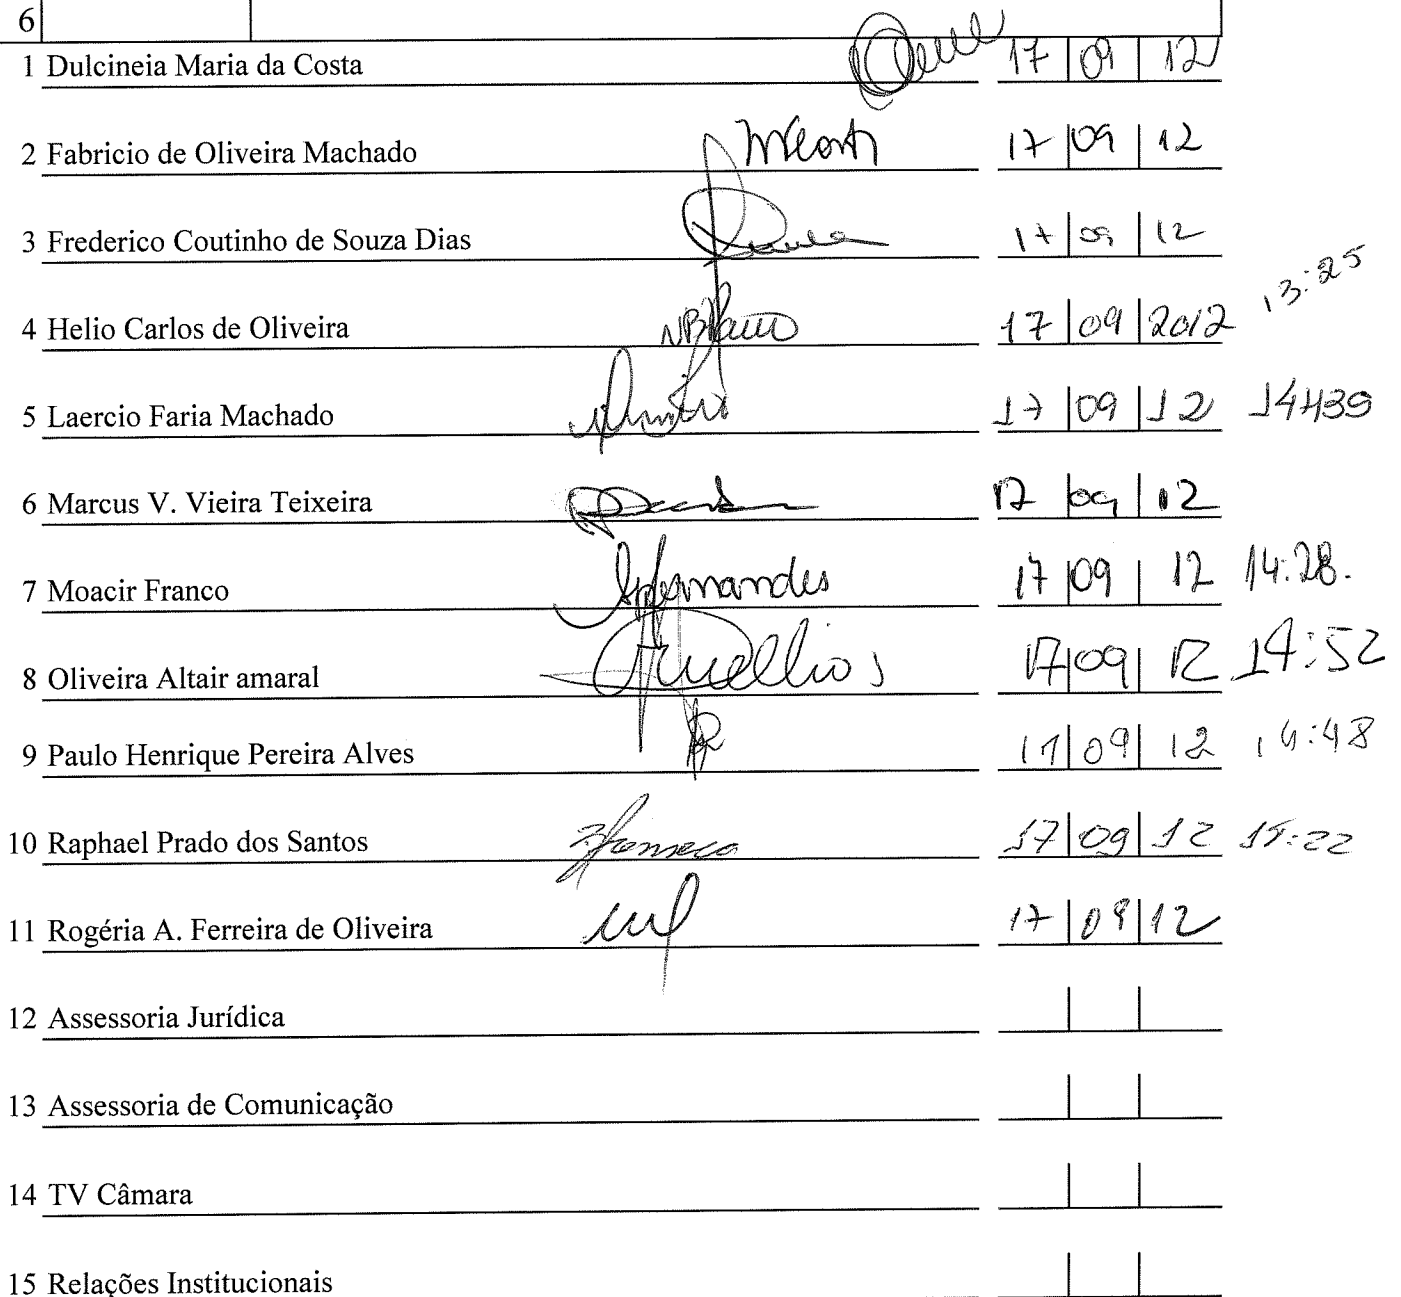 6
1 Dulcineia Maria da Costa 17 09 12
2 Fabricio de Oliveira Machado 17 09 12
3 Frederico Coutinho de Souza Dias 17 09 12
13:25
4 Helio Carlos de Oliveira 17 09 2012
5 Laercio Faria Machado 17 09 12 14H39
6 Marcus V. Vieira Teixeira 17 09 12
7 Moacir Franco Fernandes 17 09 12 14:28.
8 Oliveira Altair amaral 17 09 12 14:52
9 Paulo Henrique Pereira Alves 17 09 12 14:48
10 Raphael Prado dos Santos Fonseca 17 09 12 15:22
11 Rogéria A. Ferreira de Oliveira 17 09 12
12 Assessoria Jurídica
13 Assessoria de Comunicação
14 TV Câmara
15 Relações Institucionais